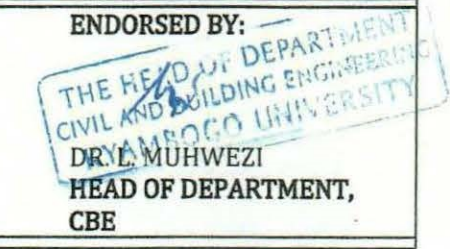 ENDORSED BY:
THE HEAD OF DEPARTMENT
CIVIL AND BUILDING ENGINEERING
KYAMBOGO UNIVERSITY
DR. L. MUHWEZI
HEAD OF DEPARTMENT,
CBE